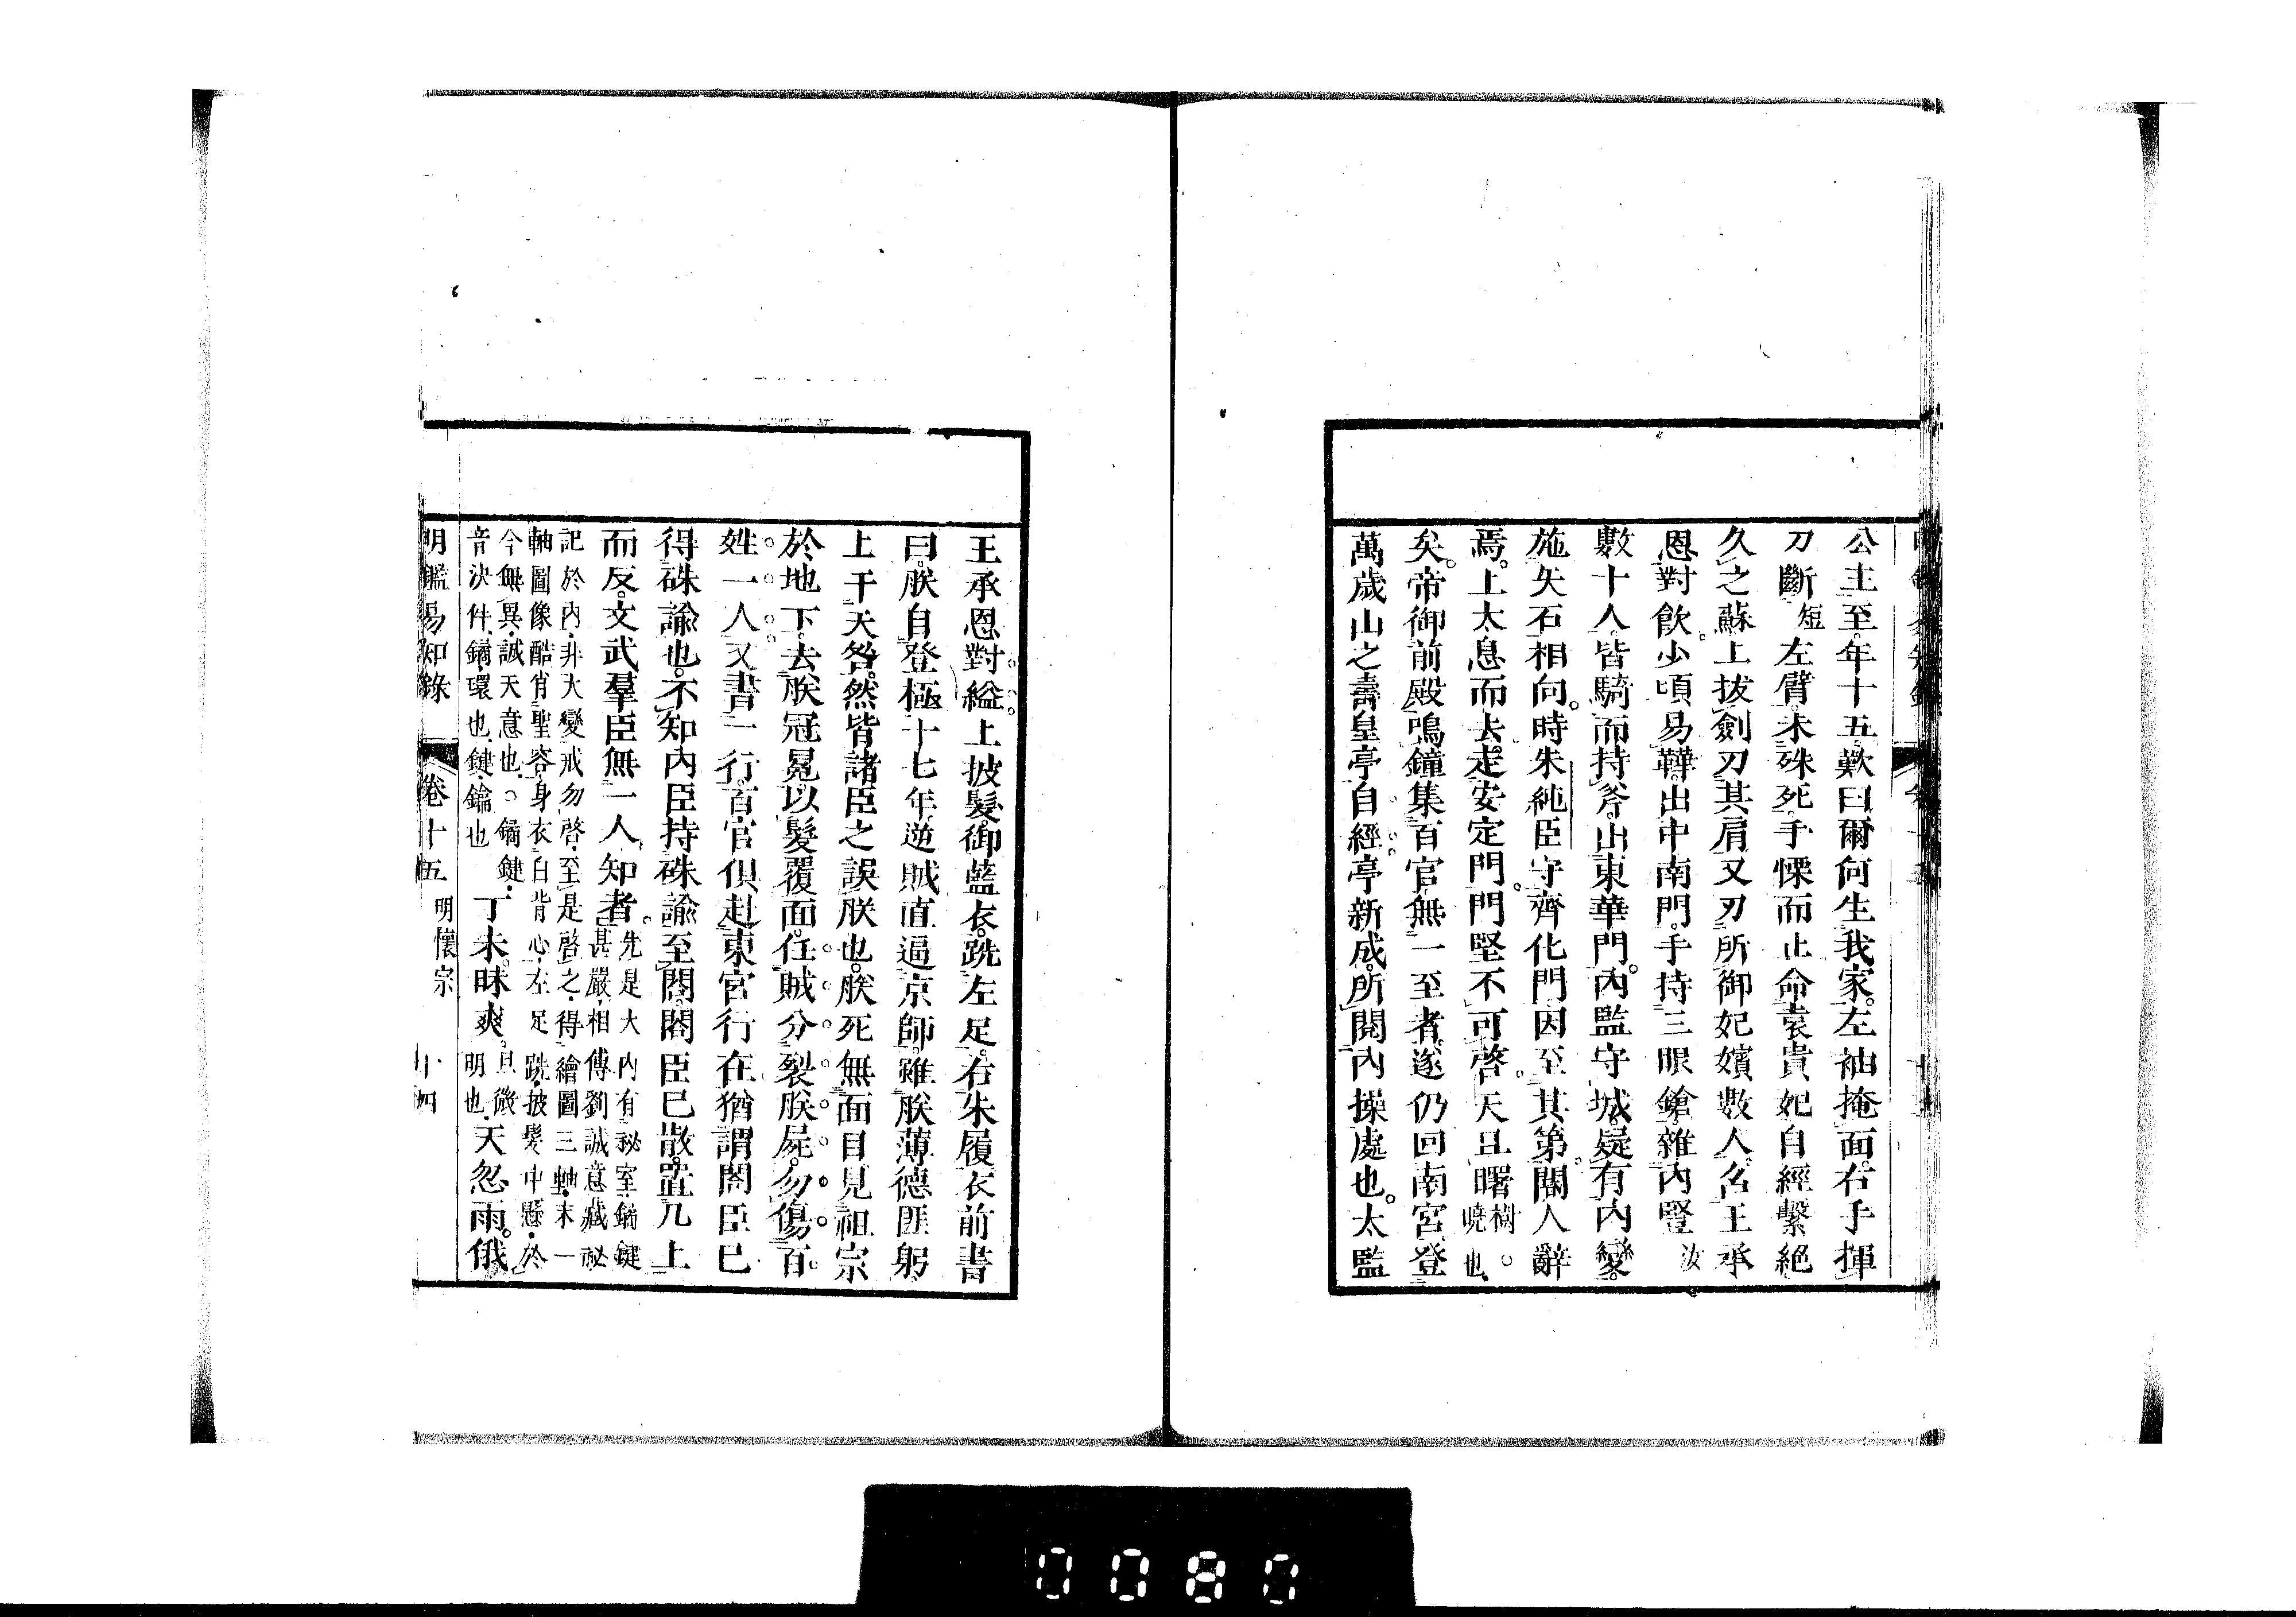 公主至年十五歎曰爾何生我家左袖掩面右手揮
刀斷短左臂未殊死手慄而止命袁貴妃自經繫絕
久之蘇上拔劍刃其肩又刃所御妃嬪數人召王承
恩對飲少頃易鞾出中南門手持三眼鎗雜內豎汝
數十人皆騎而持斧出東華門內監守城疑有內變
施矢石相向時朱純臣守齊化門因至其第閽人辭
焉上太息而去走安定門門堅不可啓天且曙樹曉也
矣帝御前殿鳴鐘集百官無一至者遂仍回南宮登
萬歲山之壽皇亭自經亭新成所閱內操處也太監
王承恩對縊上披髮御藍衣跣左足右朱履衣前書
曰朕自登極十七年逆賊直逼京師雖朕薄德匪躬
上干天咎然皆諸臣之誤朕也朕死無面目見祖宗
於地下去朕冠冕以髮覆面任賊分裂朕屍勿傷百
姓一人又書一行百官俱赴東宮行在猶謂閣臣已
得硃諭也不知內臣持硃諭至閣閣臣已散置几上
而反文武羣臣無一人知者先是大內有祕室鐍鍵甚嚴相傳劉誠意藏祕
記於內非大變戒勿啓至是啓之得繪圖三軸末一
軸圖像酷肖聖容身衣白背心左足跣披髮中懸於
今無異誠天意也○鐍鍵
音決件鐍環也鍵鑰也丁未昧爽且微明也天忽雨俄
明鑑易知錄 卷十五 明懷宗 十四
0080